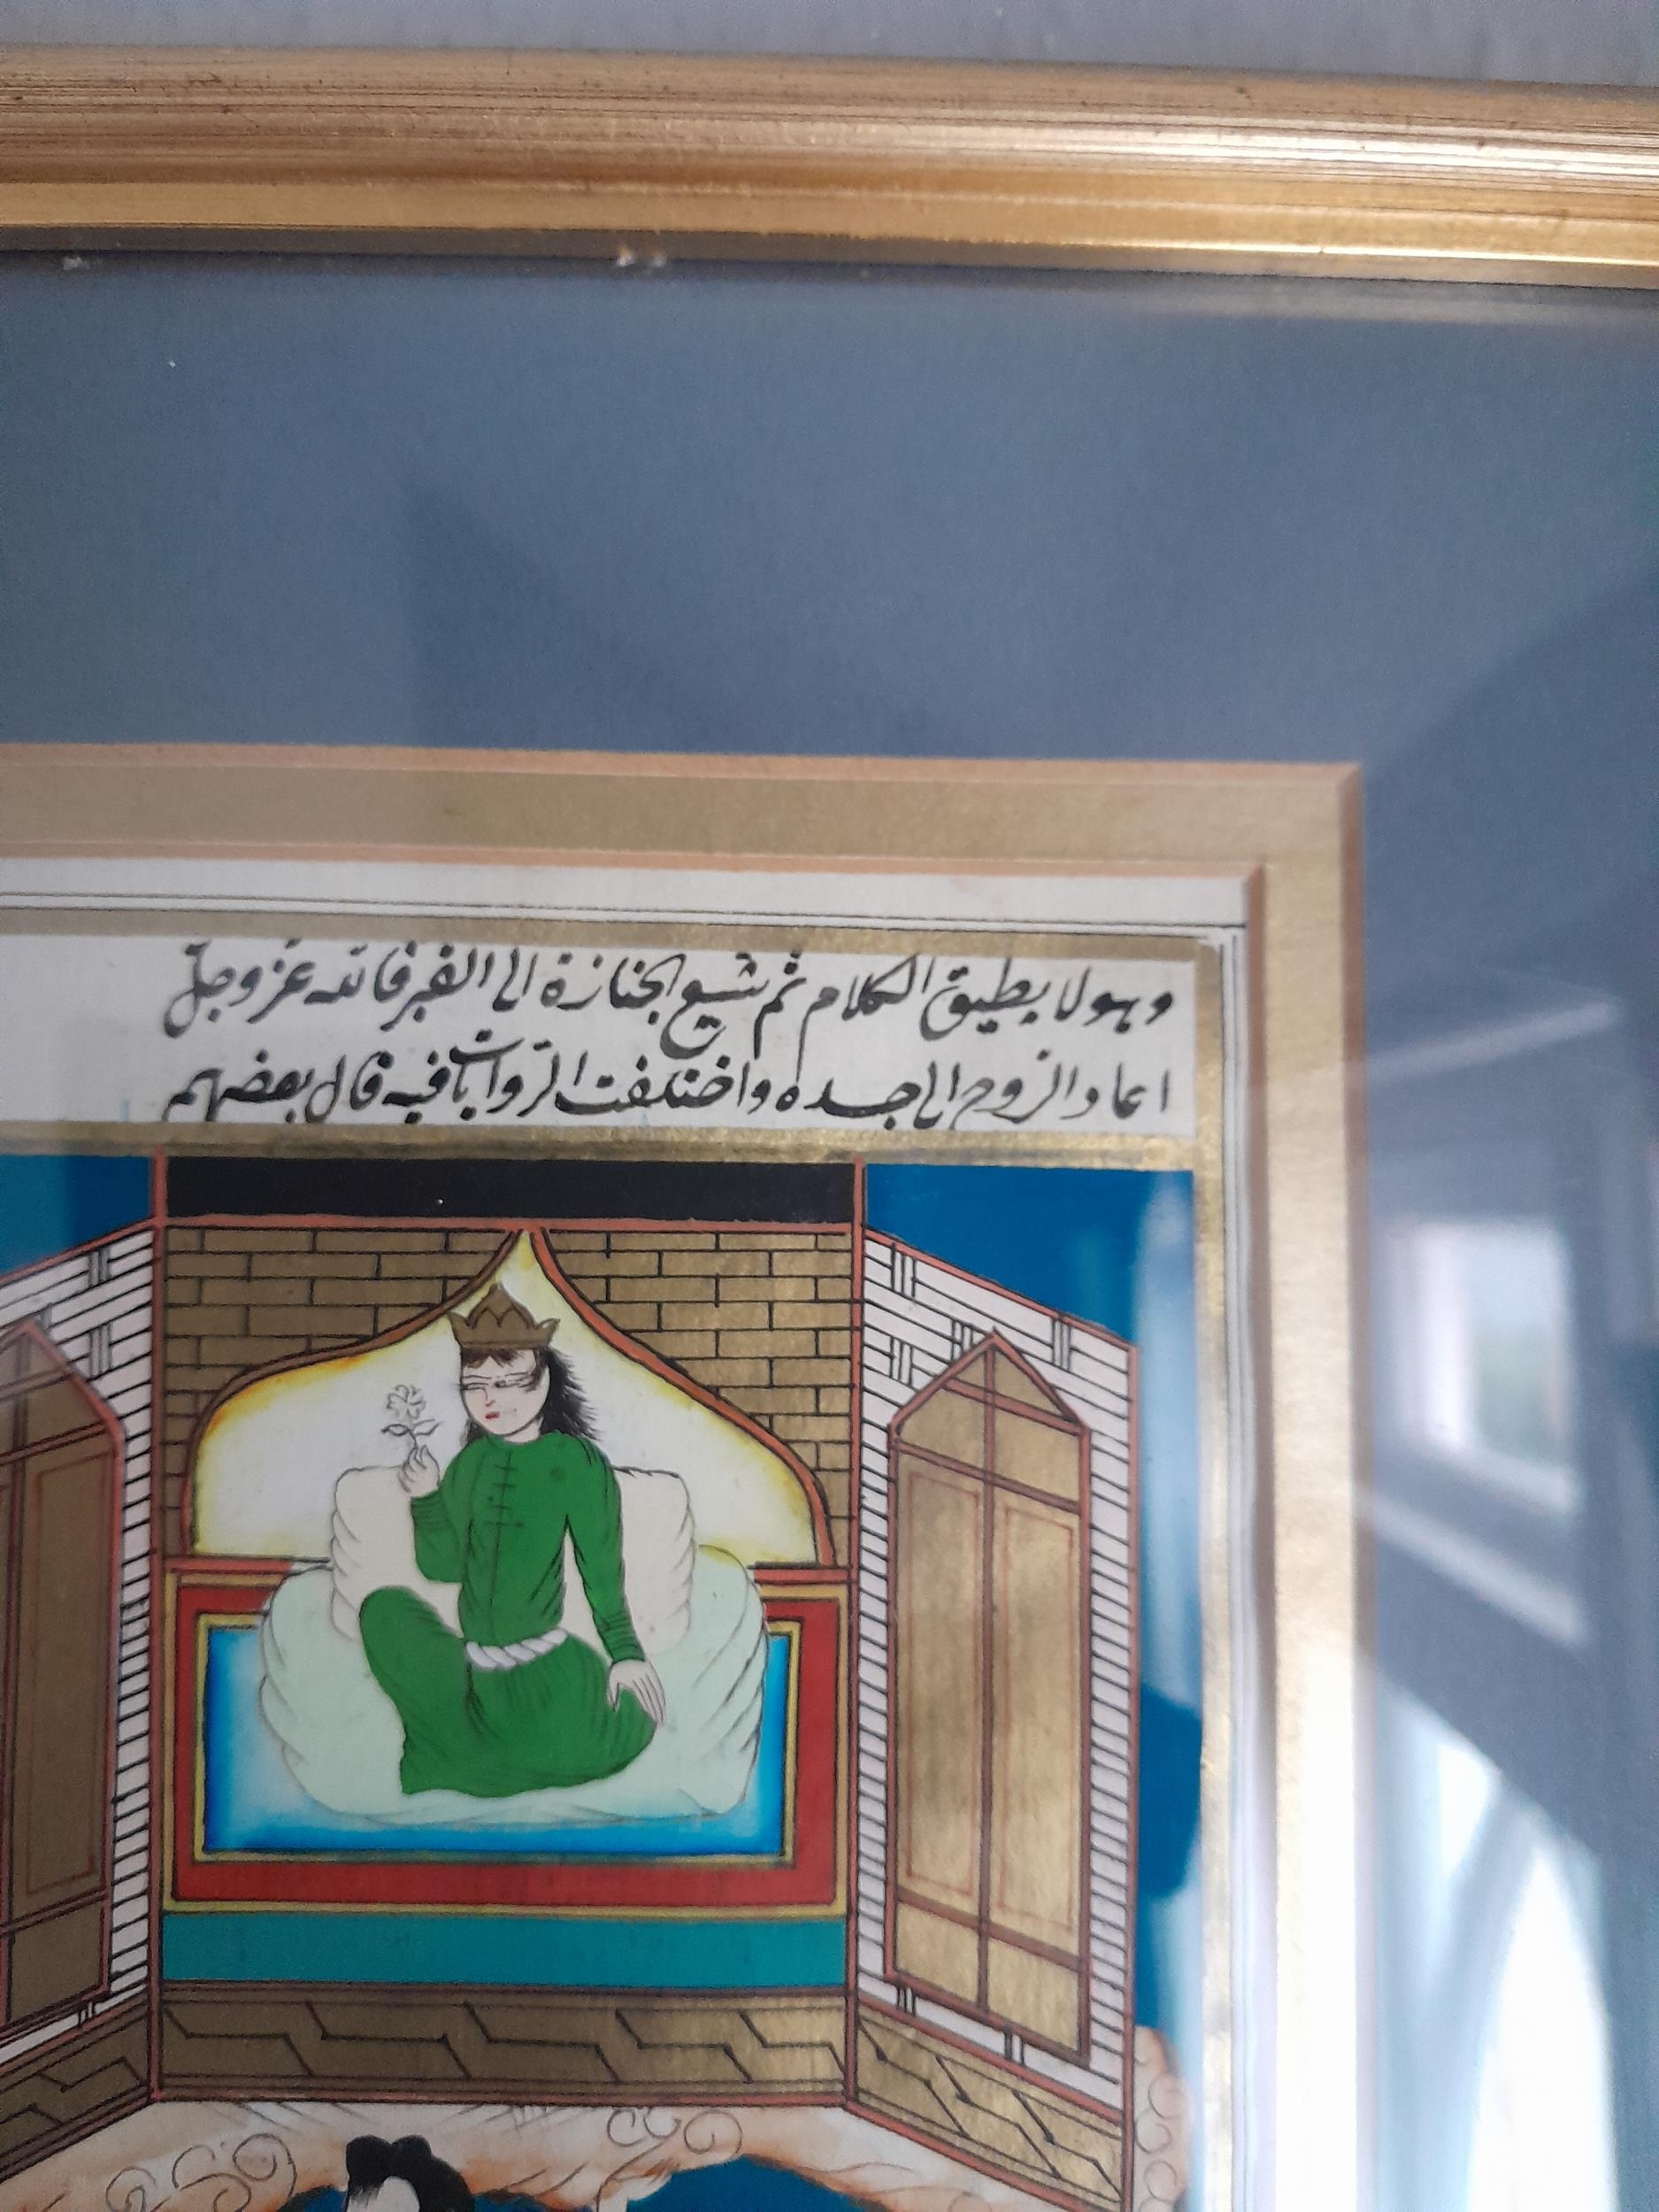 وهو لا يطيق الكلام ثم شيع الجنازة الى القبر فالله عز وجل
اعاد الروح الى جسده واختلفت الروايات فيه قال بعضهم